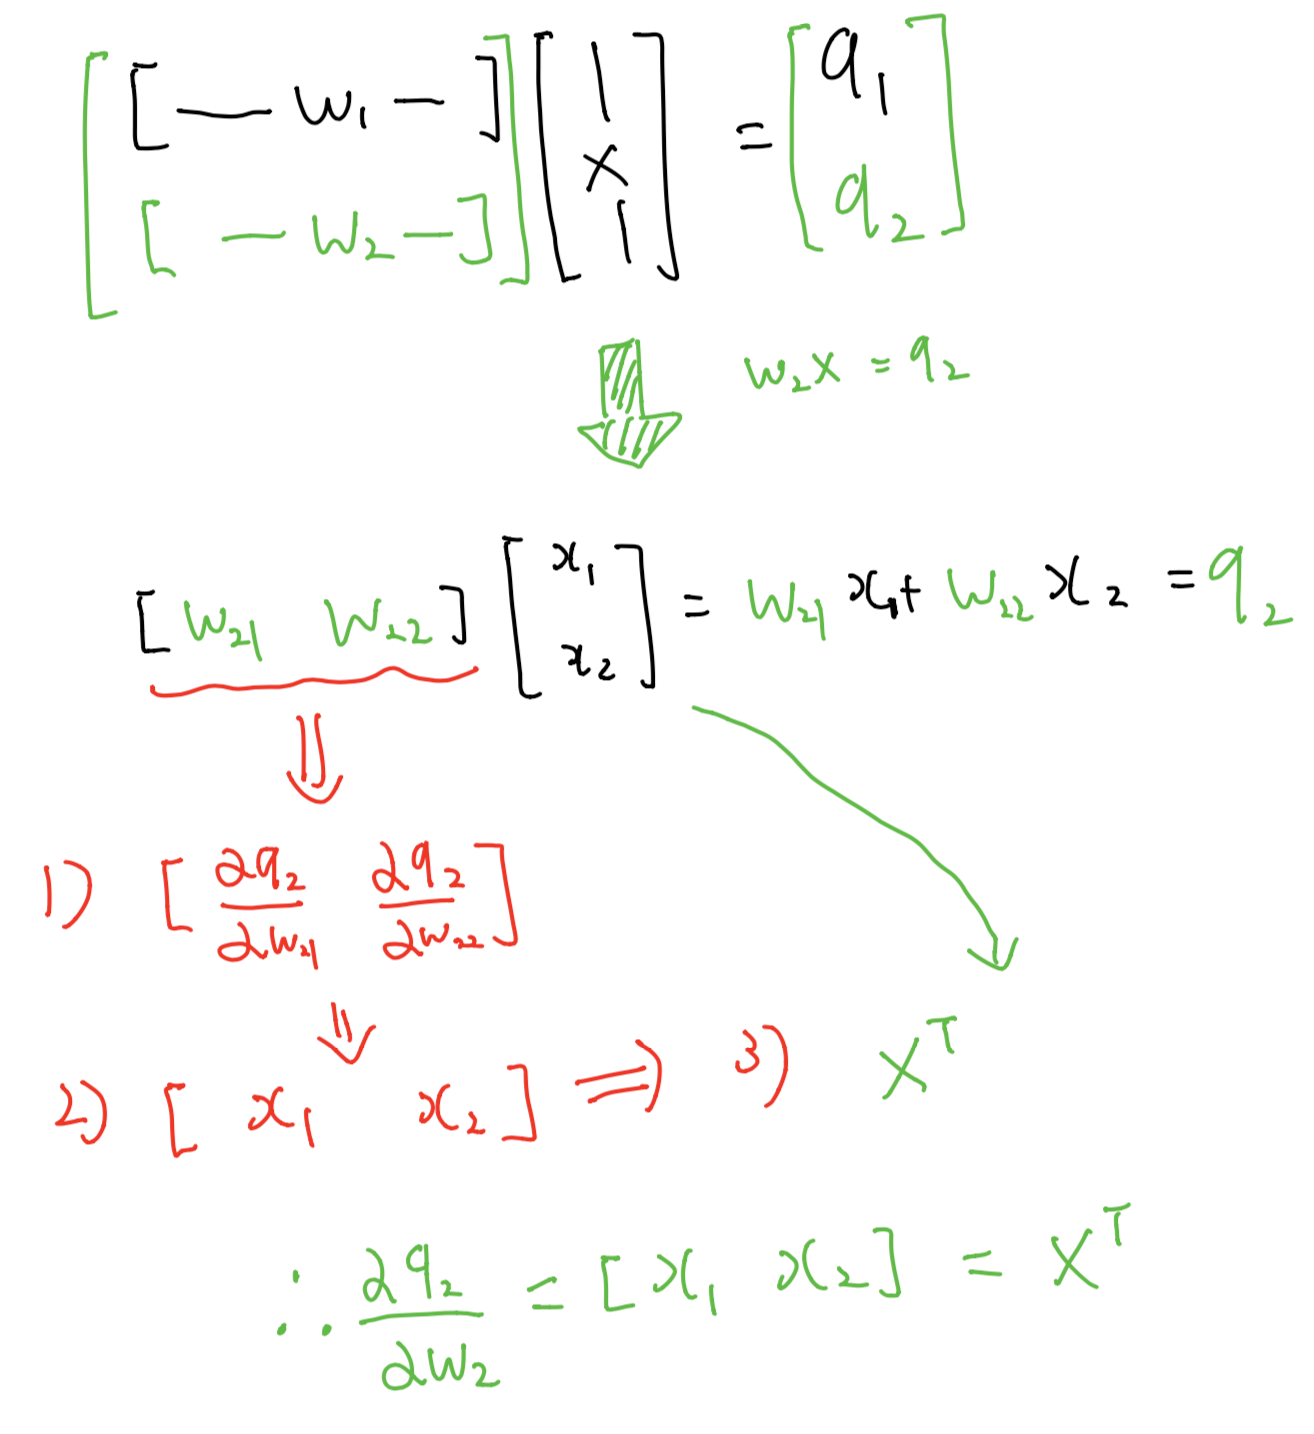 [[— w₁ —] [— w₂ —]] [| x |] = [q₁ q₂]
w₂x = q₂
[w₂₁ w₂₂] [x₁ x₂] = w₂₁x₁ + w₂₂x₂ = q₂
1) [∂q₂/∂w₂₁ ∂q₂/∂w₂₂]
2) [x₁ x₂] ⇒ 3) xᵀ
∴ ∂q₂/∂w₂ = [x₁ x₂] = xᵀ